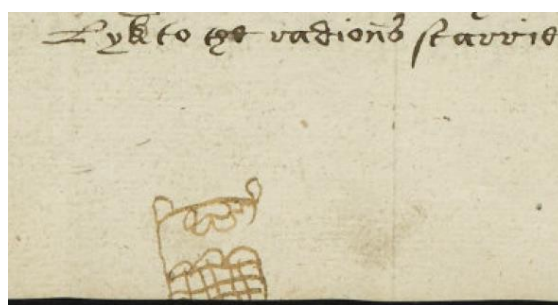 Lyk to the radions starrie